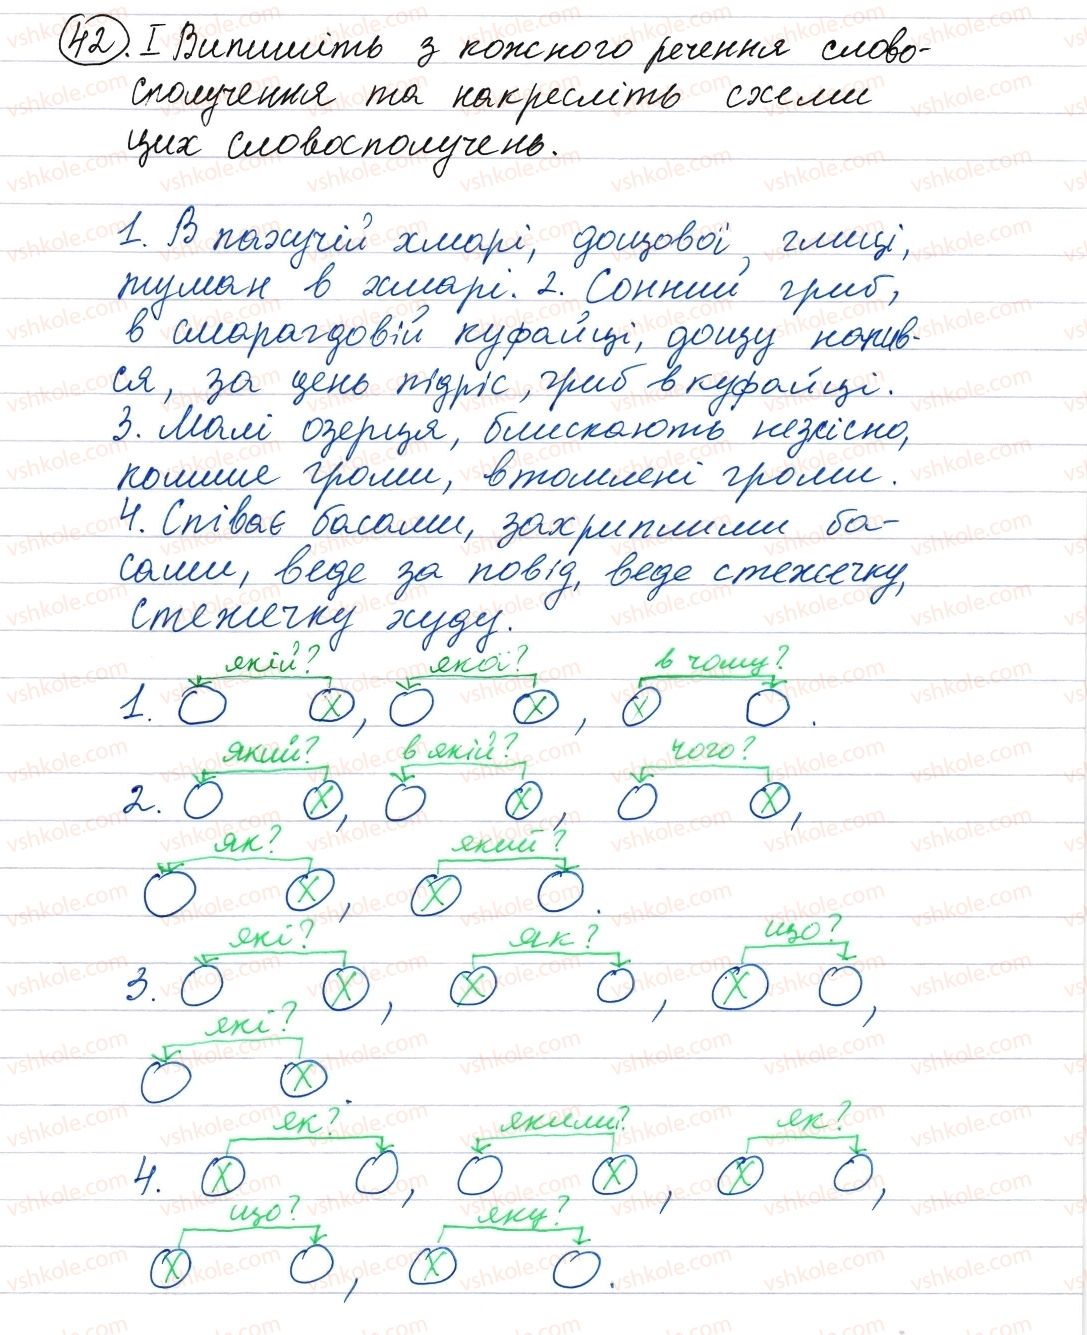 42. І Випишіть з кожного речення слово-
сполучення та накресліть схеми
цих словосполучень.
1. В пахучій хмарі, дощової глиці,
туман в хмарі. 2. Сонний гриб,
в смарагдовій куфайці, дощу напив-
ся, за день підріс, гриб в куфайці.
3. Малі озерця, блискають незлісно,
колише громи, втомлені громи.
4. Співає басами, захриплими ба-
сами, веде за повід, веде стежечку,
стежечку худу.
якій? якої? в чому?
1. X , X , X .
який? в якій? чого?
2. X , X , X ,
як? який?
X , X .
які? як? що?
3. X , X , X ,
які?
X .
як? якими? як?
4. X , X , X ,
що? яку?
X , X .
vshkole.com